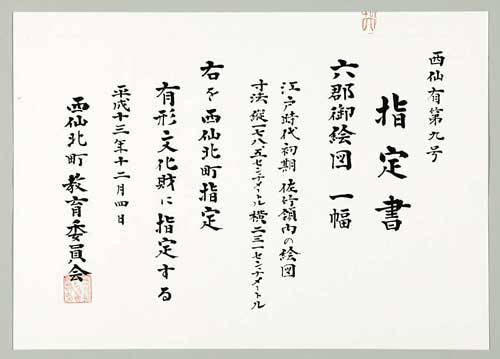 西仙有第九号
指定書
六郡御絵図 一幅
江戸時代初期 佐竹領内の絵図
寸法 縦一七八・五センチメートル 横二三一センチメートル
右を西仙北町指定
有形文化財に指定する
平成十三年十二月四日
西仙北町教育委員会